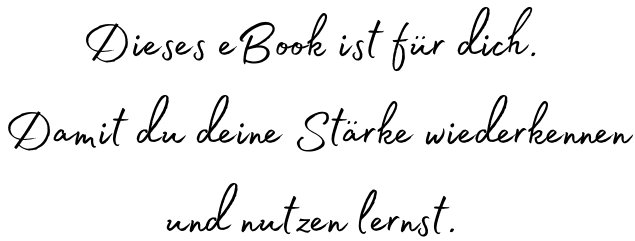 Dieses eBook ist für dich.
Damit du deine Stärke wiederkennen
und nutzen lernst.